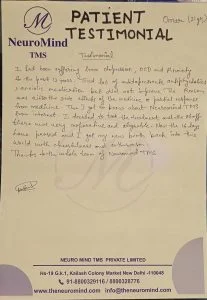 PATIENT
TESTIMONIAL
NeuroMind
TMS
Testimonial
I have been suffering from depression, OCD and Anxiety
for the past 12 years. Tried lot of antidepressants, antipsychotics
various medication but did not improve. The reason
was either the side effects of the medicine or partial response
from medicine. Then I got to know about Neuromind TMS
from internet. I decided to take the treatment and the staff
there was very cooperative and adjustable. Now the 30 days
have passed and I got my new birth back into this
world with
Thanks to the whole team of Neuromind TMS
M
NEURO MIND TMS PRIVATE LIMITED
No-19 G.k.1, Kailash Colony Market New Delhi -110048
91-8800329116 / 8800328776
www.theneuromind.com info@theneuromind.com